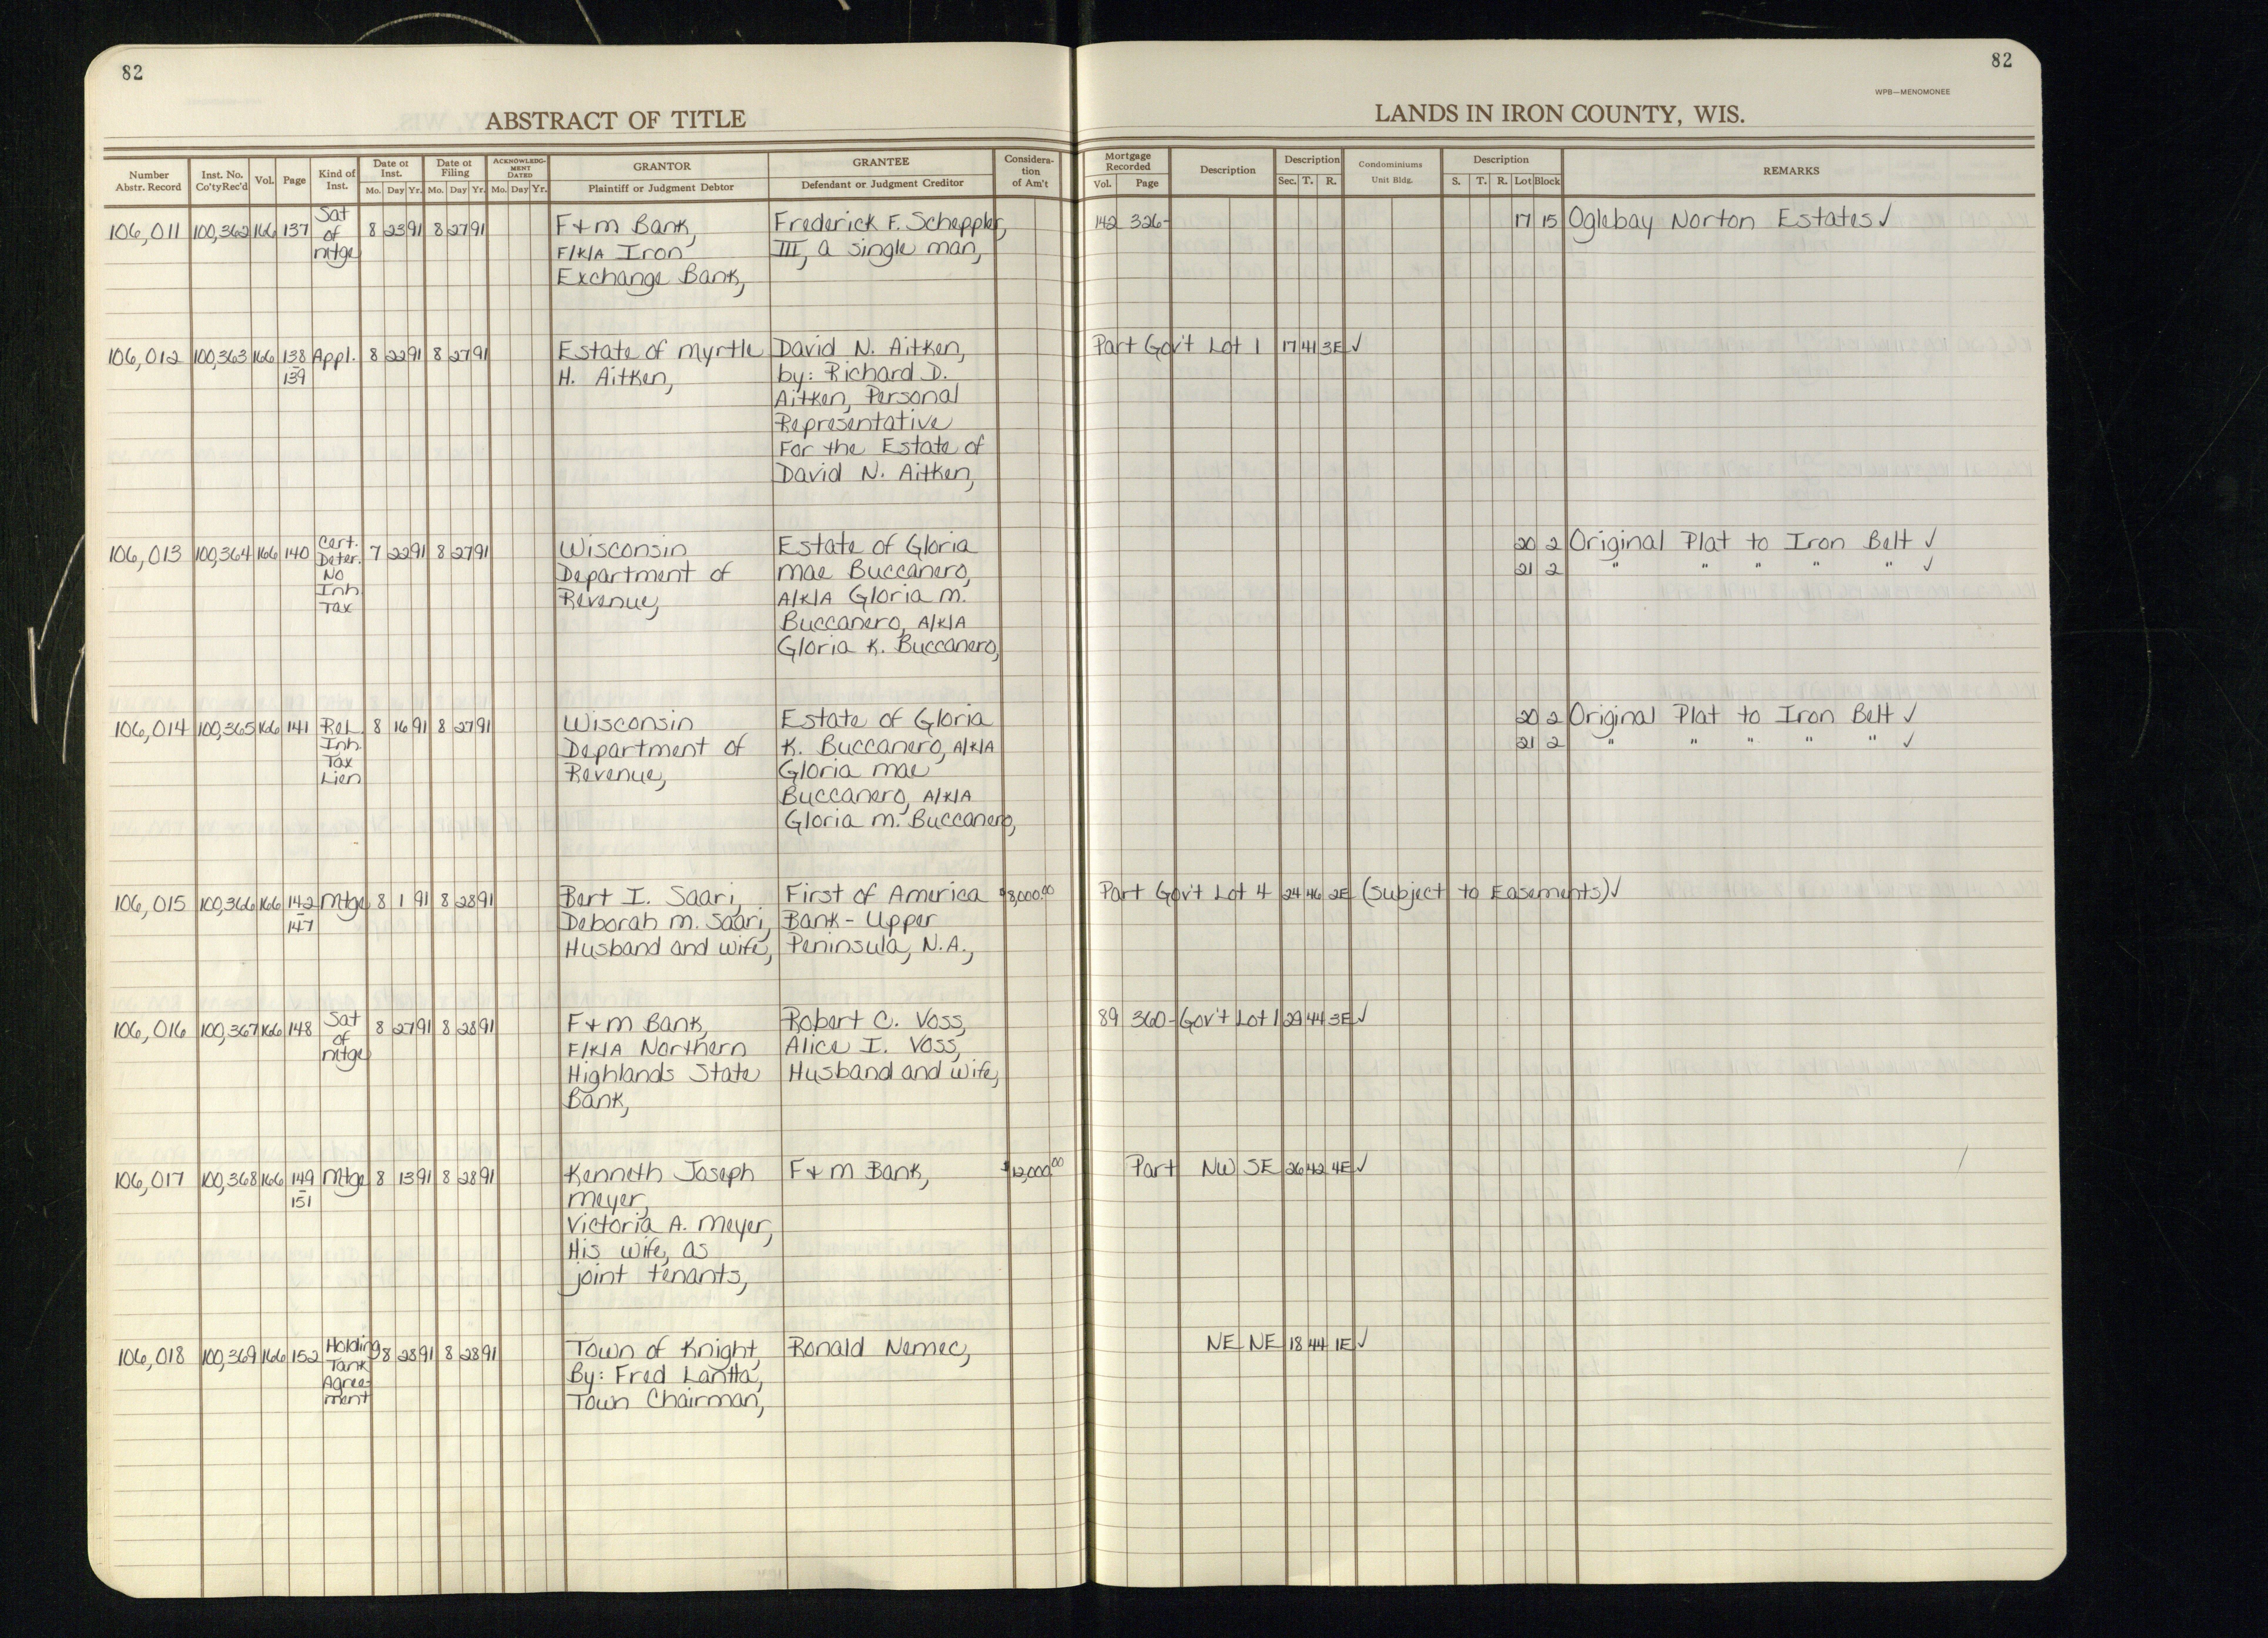 82
82
WPB—MENOMONEE
ABSTRACT OF TITLE
LANDS IN IRON COUNTY, WIS.
Number Abstr. Record
Inst. No. Co'ty Rec'd
Vol.
Page
Kind of Inst.
Date of Inst.
Mo. Day Yr.
Date of Filing
Mo. Day Yr.
ACKNOWLEDGMENT DATED
Mo. Day Yr.
GRANTOR
Plaintiff or Judgment Debtor
GRANTEE
Defendant or Judgment Creditor
Consideration of Am't
Mortgage Recorded
Vol. Page
Description
Description
Sec. T. R.
Condominiums
Unit Bldg.
Description
S. T. R. Lot Block
REMARKS
106,011 100,362 166 137 Sat of mtge 8 23 91 8 27 91
F+M Bank,
F/K/A Iron
Exchange Bank,
Frederick F. Scheppler,
III, a single man,
142 326- 17 15 Oglebay Norton Estates ✓
106,012 100,363 166 138-139 Appl. 8 22 91 8 27 91
Estate of Myrtle
H. Aitken,
David N. Aitken,
by: Richard D.
Aitken, Personal
Representative
For the Estate of
David N. Aitken,
Part Gov't Lot 1 17 41 3E ✓
106,013 100,364 166 140 Cert. Deter. No Inh. Tax 7 22 91 8 27 91
Wisconsin
Department of
Revenue,
Estate of Gloria
Mae Buccanero,
A/K/A Gloria M.
Buccanero, A/K/A
Gloria K. Buccanero,
20 2 Original Plat to Iron Belt ✓
21 2 " " " " " ✓
106,014 100,365 166 141 Rel. Inh. Tax Lien 8 16 91 8 27 91
Wisconsin
Department of
Revenue,
Estate of Gloria
K. Buccanero, A/K/A
Gloria Mae
Buccanero, A/K/A
Gloria M. Buccanero,
20 2 Original Plat to Iron Belt ✓
21 2 " " " " " ✓
106,015 100,366 166 142-147 Mtge 8 1 91 8 28 91
Bert I. Saari,
Deborah M. Saari,
Husband and wife,
First of America
Bank - Upper
Peninsula, N.A.,
$8,000.00
Part Gov't Lot 4 24 46 2E (subject to Easements) ✓
106,016 100,367 166 148 Sat of mtge 8 27 91 8 28 91
F+M Bank,
F/K/A Northern
Highlands State
Bank,
Robert C. Voss,
Alice I. Voss,
Husband and wife,
89 360- Gov't Lot 1 29 44 3E ✓
106,017 100,368 166 149-151 Mtge 8 13 91 8 28 91
Kenneth Joseph
Meyer,
Victoria A. Meyer,
His wife, as
joint tenants,
F+M Bank,
$12,000.00
Part NW SE 26 42 4E ✓
106,018 100,369 166 152 Holding Tank Agree-ment 8 28 91 8 28 91
Town of Knight,
By: Fred Lantta,
Town Chairman,
Ronald Nemec,
NE NE 18 44 1E ✓